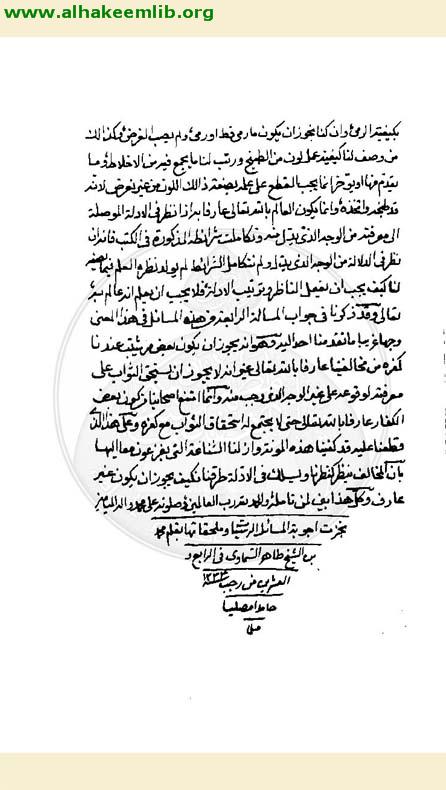 www.alhakeemlib.org
بكيفية الرمي وان كنا نجوز ان يكون ما رمى قط اورمى ولم يصب الغرض وكذا لك
من وصف لنا كيفية عمل لون من الطبيخ ورتب لنا ما يجمع فيه من الاخلاط وما
يقدم منها او يؤخر انما يجب القطع على علمه بصنعة ذلك اللون من غير تعرض لانه
قد طبخه واتخذه وانما يكون العالم بالله تعالى عارفا به اذا نظر في الادلة الموصلة
الى معرفته من الوجه الذي يدل منه وتكاملت شرائطه المذكورة في الكتب فانه ان
نظر في الدلالة من الوجه الذي يدل ولم تتكامل الشرائط لم يولد نظره العلم
لنا كيف يجب ان يفعل الناظر ترتيب الادلة فلا يجب ان يعلم انه عالم به
تعالى وقد ذكرنا في جواب المسألة الرابعة من هذه المسائل في هذا المعنى
وجها غريبا ما تقدمنا احد اليه وهو انه يجوز ان يكون بعض من يثبت عندنا
كفره من مخالفينا عارفا بالله تعالى غير انه لا يجوز ان يستحق الثواب على
معرفته لوقوعه على غير الوجه الذي وجب منه وانما امتنع اصحابنا من كون بعض
الكفار عارفا بالله تعالى حتى لا يجتمع له استحقاق الثواب مع كفره وعلى هذا الذي
بان المخالف ينظر كنظرنا ويسلك في الادلة طرقنا فكيف يجوز ان يكون غير
عارف وكل هذا بين لمن تامله والحمد لله رب العالمين وصلوته على محمد واله الطيبين
نجزت اجوبة المسائل الرسية وملحقاتها بقلم محمد
بن الشيخ طاهر السماوي في الرابع و
العشرين من رجب
حامدا مصليا